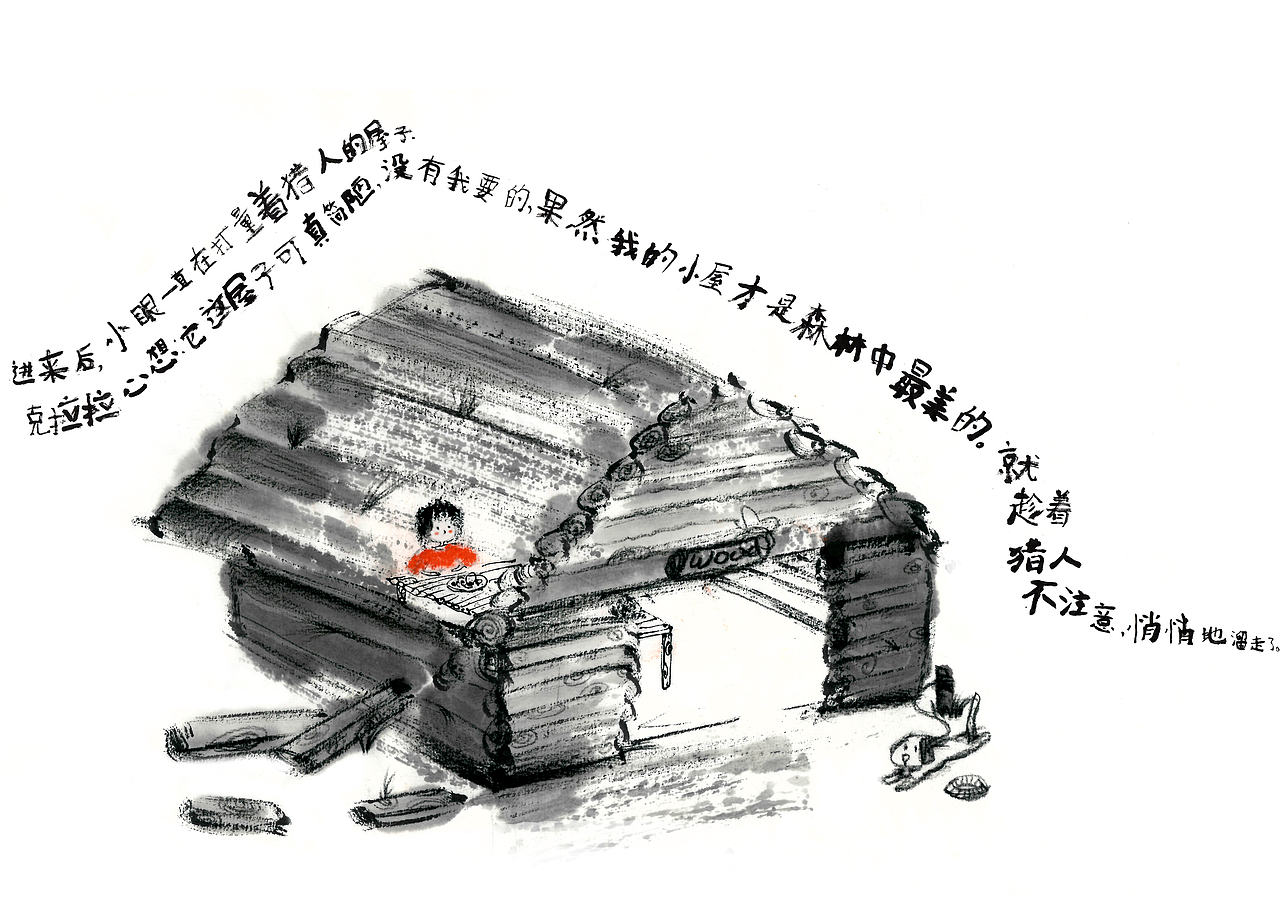 进来后,小眼一直在打量着猎人的屋子.
克拉拉心想:它这屋子可真简陋,没有我要的,果然我的小屋才是森林中最美的。就
趁着
猎人
不注意,悄悄地溜走了。
wood